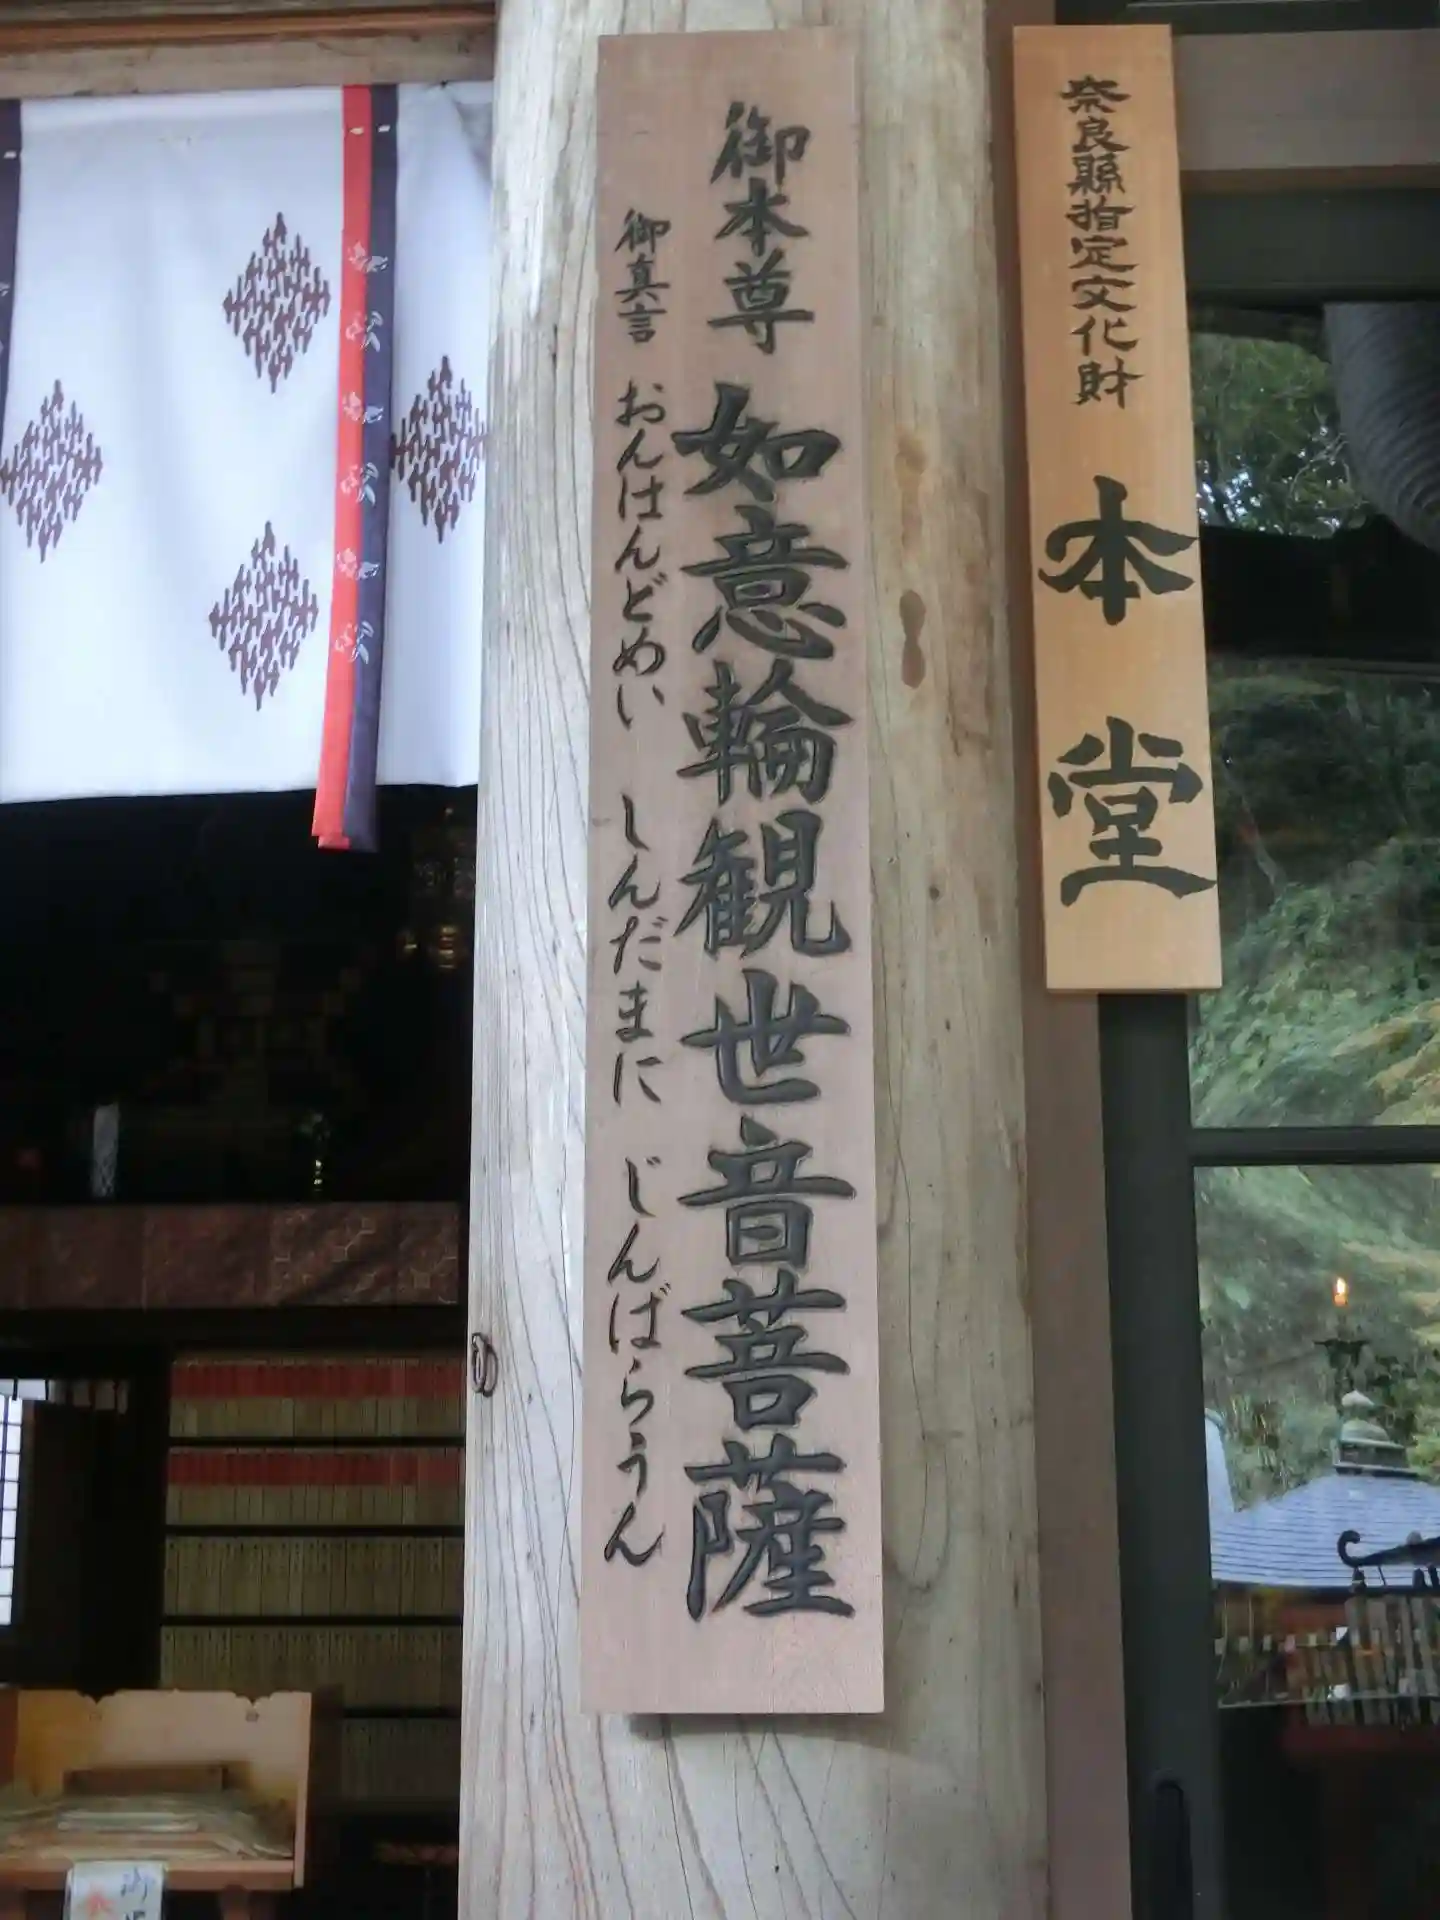 奈良縣指定文化財 本堂
御本尊 如意輪観世音菩薩
御真言 おんはんどめい しんだまに じんばらうん